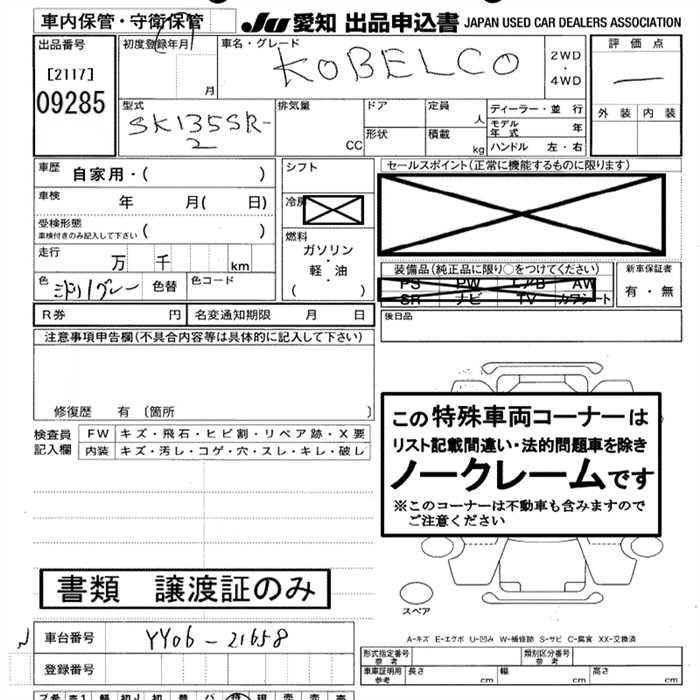 車内保管・守衛保管
JU 愛知 出品申込書 JAPAN USED CAR DEALERS ASSOCIATION
出品番号
[2117]
09285
初度登録年月
月
車名・グレード
KOBELCO
2WD
・
4WD
評価点
—
外装 内装
型式
SK135SR-
2
排気量
CC
ドア
形状
定員
人
積載
kg
ディーラー・並 行
モデル
年 式
年
ハンドル 左・右
車歴
自家用・( )
車検
年 月( 日)
受検形態
車検付きのみ記入して下さい ( )
走行
万 千 km
色
色替
色コード
シフト
冷房
燃料
ガソリン
・
軽・油
( )
セールスポイント(正常に機能するものに限ります)
装備品(純正品に限り○をつけてください)
PS PW エアB AW
SR ナビ TV カワシート
新車保証書
有・無
R券 円
名変通知期限 月 日
後日品
注意事項申告欄(不具合内容等は具体的に記入して下さい)
修復歴 有〔箇所 〕
検査員
記入欄
FW キズ・飛石・ヒビ割・リペア跡・X要
内装 キズ・汚レ・コゲ・穴・スレ・キレ・破レ
この特殊車両コーナーは
リスト記載間違い・法的問題車を除き
ノークレームです
※このコーナーは不動車も含みますので
ご注意ください
書類 譲渡証のみ
スペア
A-キズ E-エクボ U-凹み W-補修跡 S-サビ C-腐食 XX-交換済
車台番号
YY06-21658
登録番号
形式指定番号
参考
類別区分番号
参考
車庫証明用
参考
長さ cm 幅 cm 高さ cm